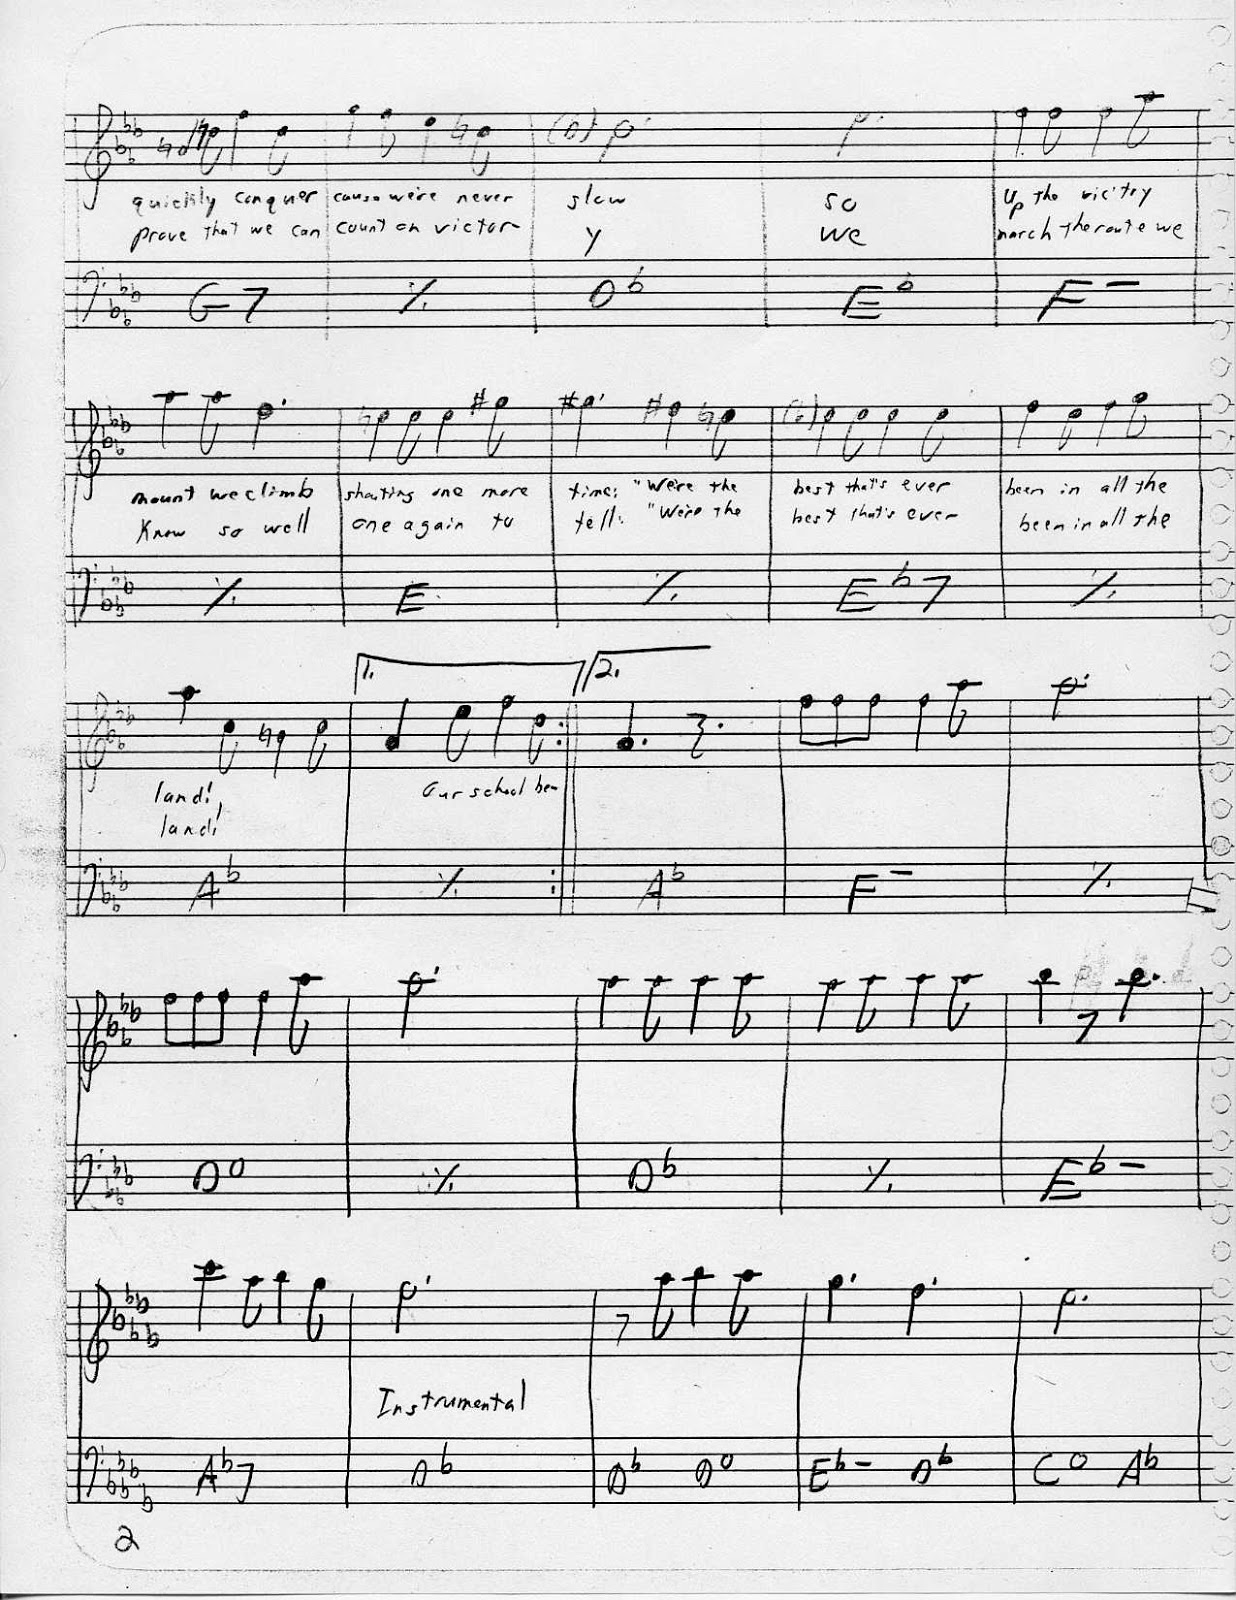 quickly conquer cause we're never slow so up the vic'try
prove that we can count on victor- y we march the route we
G7 ٪ Db Eb F-
mount we climb shouting one more time: "We're the best that's ever been in all the
know so well one again to tell: "We're the best that's ever been in all the
٪ E ٪ Eb7 ٪
1. 2.
land! Our school ben
land!
Ab ٪ Ab F- ٪
D° ٪ Db ٪ Eb-
Instrumental
Ab7 Db Db D° Eb- Ab C° Ab
2